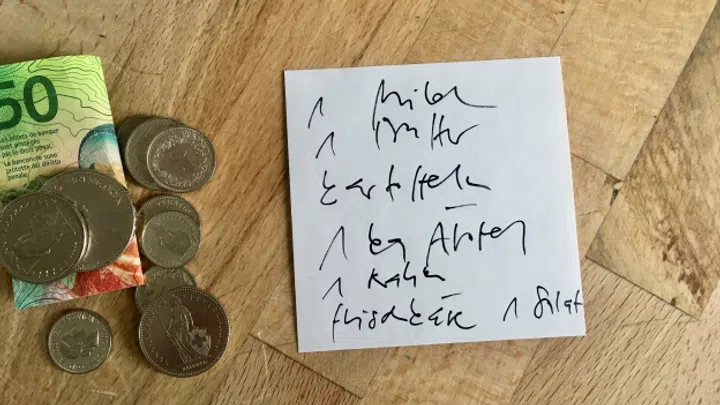 50
sont protégés
par le droit pénal.
Le banconote sono
protette dal diritto
penale.
1 Milch
1 Butter
Kartoffeln
1 kg
1 Rahm
Frischkäse 1 Salat